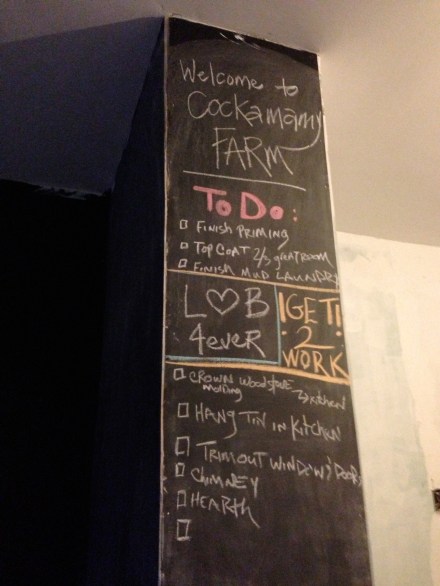 Welcome to
Cockamamy
FARM
To Do:
FINISH PRIMING
TOP COAT 2/3 greatROOM
FINISH MUD LAUNDRY
L♡B
4ever
!GET!
2
WORK
CROWN WoodSTOVE
molding → kitchen
HANG TIN IN KitCHEN
TRIMOUT WINDOWS DOORS
CHIMNEY
HEARTH